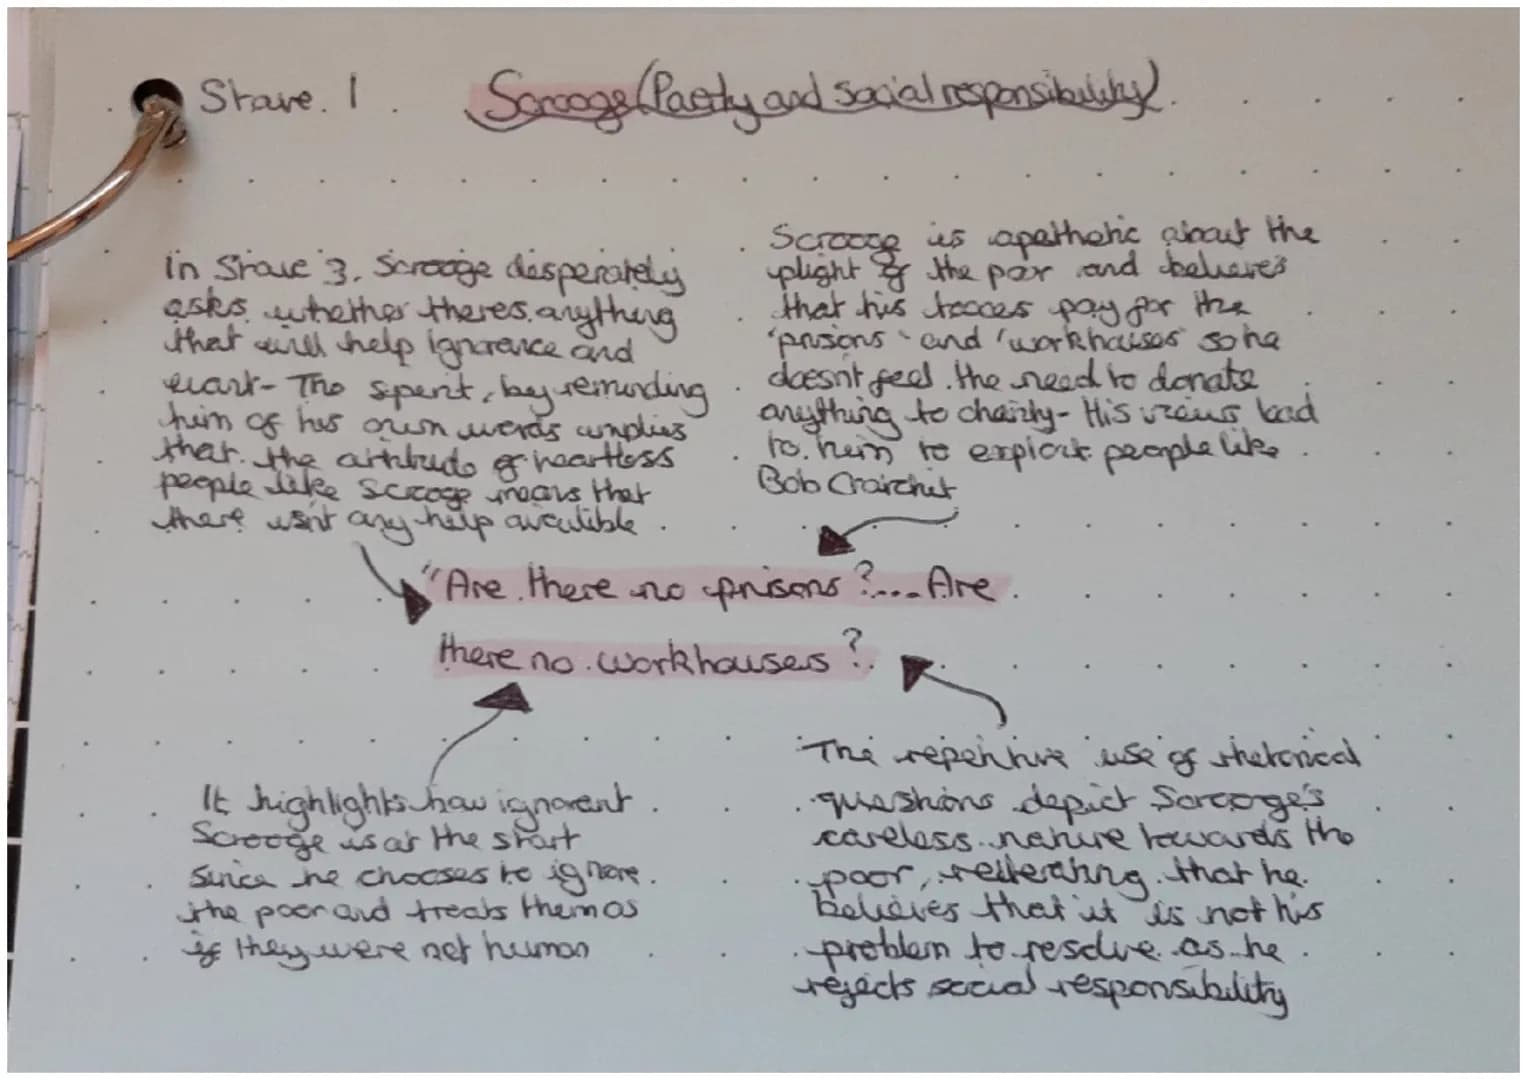 Stave. 1
Scrooge (Poverty and social responsibility)
In Stave 3, Scrooge desperately
asks whether theres anything
that will help ignorance and
want- The spirit, by reminding
him of his own words implies
that the attitude of heartless
people like Scrooge means that
there isn't any help availible
Scrooge is apathetic about the
plight of the poor and believes
that his taxes pay for the
'prisons' and 'workhouses' so he
doesn't feel the need to donate
anything to charity- His views lead
to him to exploit people like
Bob Cratchit
"Are there no prisons?.... Are
there no workhouses?
It highlights how ignorant
Scrooge is at the start
since he chooses to ignore
the poor and treats them as
if they were not human
The repetitive use of rhetorical
questions depict Scrooge's
careless nature towards the
poor, reiterating that he
believes that it is not his
problem to resolve as he
rejects social responsibility